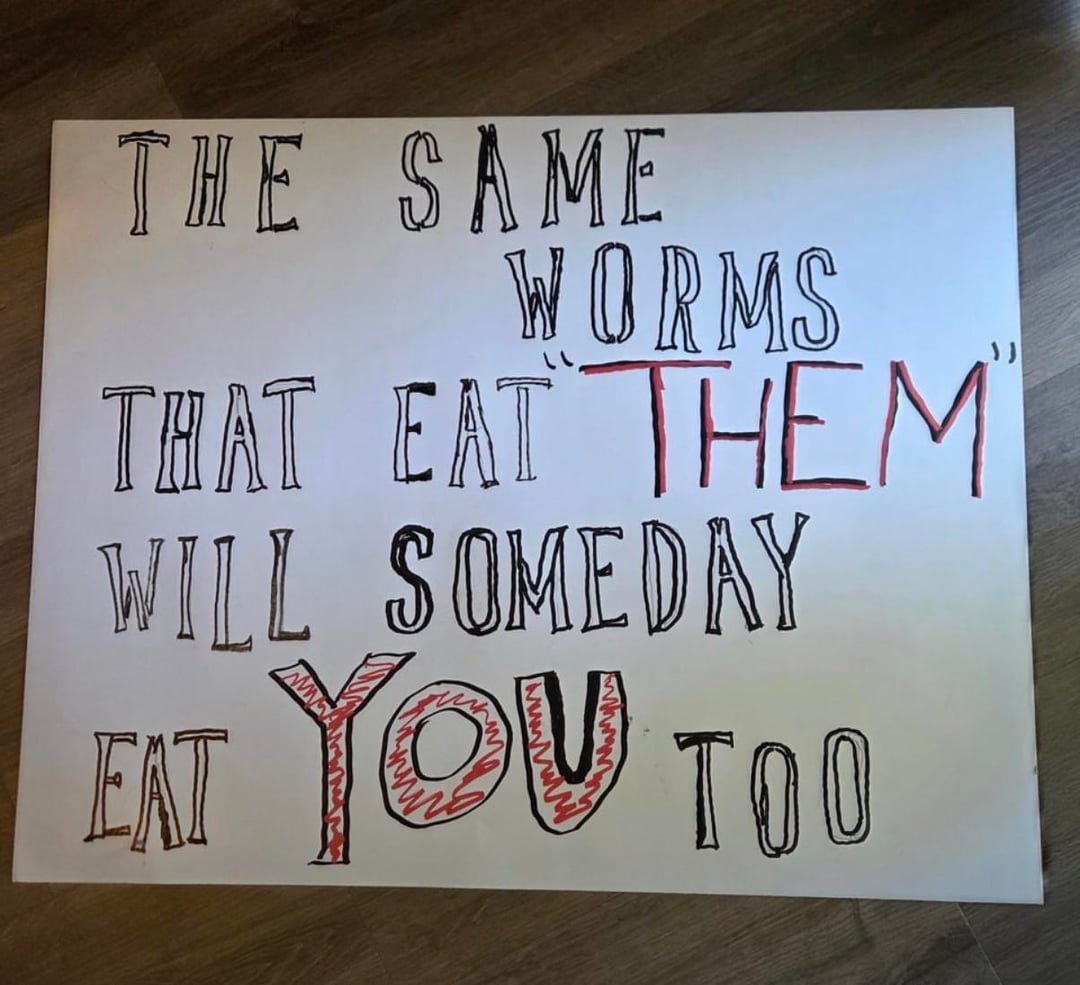 THE SAME
WORMS
THAT EAT "THEM"
WILL SOMEDAY
EAT YOU TOO